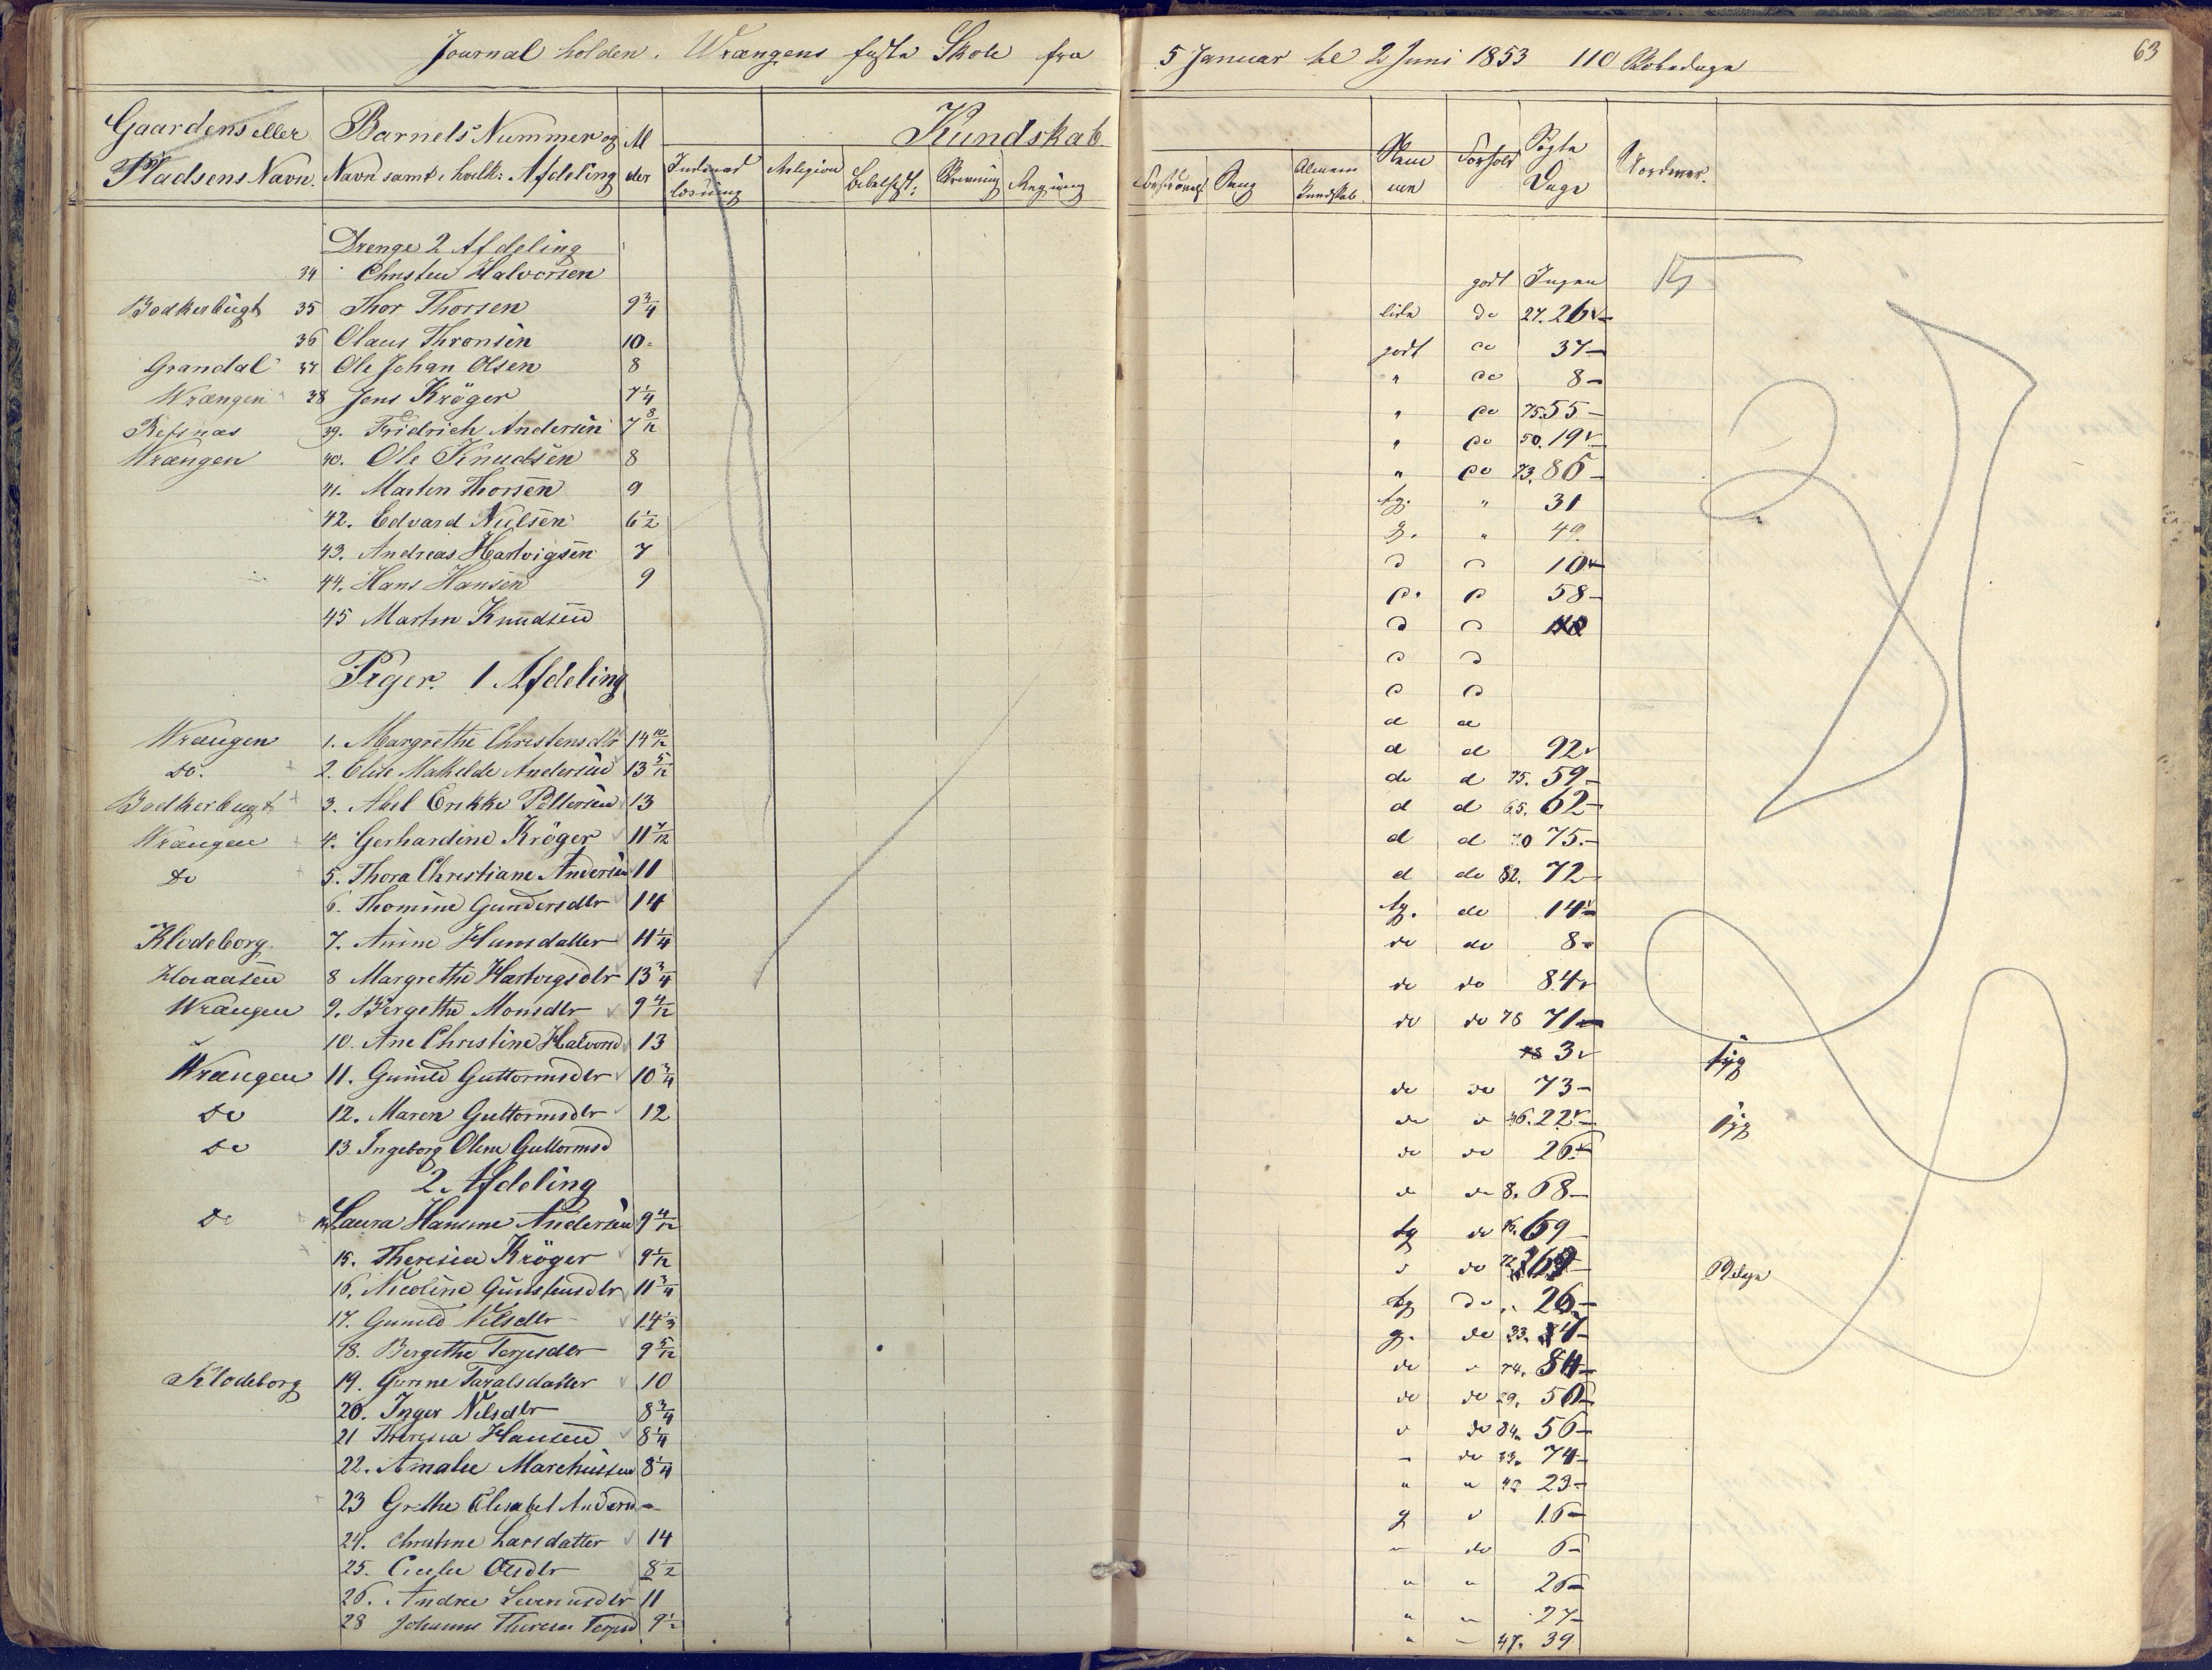 Journal holden i Wrængens faste Skole fra 5 Januar til 2 Juni 1853 110 Skoledage
63
Gaardens eller Pladsens Navn. Barnets Nummer og Navn samt i hvilk: Afdeling Al der Kundskab
Religion Bibelhist: Skrivning Regning Sang Almeen Kundskab Nem me Forhold Søgte Dage
Drenge 2 Afdeling
34 Christen Halvorsen godt Ingen
Bødkerbugt 35 Thor Thorsen 9 3/4 lide do 27. 26
36 Olaus Thronsen 10 godt do 37
Grandal 37 Ole Johan Olsen 8 " do 8
Wrængen 38 Jens Krøger 7 1/4 " do 75 55
Refsnæs 39. Fridrich Andersen 7 8/12 " do 50. 19
Wrængen 40. Ole Knudsen 8 " do 73. 86
41. Martin Thorsen 9 tg. " 31
42. Edvard Nielsen 6 1/2 g. " 49
43. Andreas Hartvigsen 7 10
44. Hans Hansen 9 58
45 Martin Knudsen
Piger. 1 Afdeling
Wrængen 1. Margrethe Christensdtr 14 10/12 d d 92
Do. 2. Elise Mathilde Andersen 13 5/12 do d 75. 59
Bødkerbugt 3. Abel Erikke Pettersen 13 d d 65. 62
Wrængen 4. Gerhardine Krøger 11 7/12 d d 75
Do 5. Thora Christiane Andersen 11 d do 82. 72
6. Thomine Gundersdtr 14 tg. do 14
Klodeborg 7. Anine Hansdatter 11 1/4 do do 8
8 Margrethe Hartvigsdtr 13 3/4 do do 84
Wrængen 9. Birgethe Monsdtr 9 4/12 do do 78 71
10. Ane Christine Halvorsd 13 3 syg
Wrængen 11. Gunild Guttormsdtr 10 3/4 do do 73
Do 12. Maren Guttormsdtr 12 22 syg
Do 13. Ingeborg Oline Guttormsd do do 26
2. Afdeling
68
Do 14 Laura Hansine Andersen 9 4/12 tg do 69
15. Theresia Krøger 9 1/12 do
16. Nicoline Gunstensdtr 11 3/4 tg do 26
17. Gunild Nilsdtr 14 g. do 33.
18. Bergethe Terjesdtr 9 5/12 do 74. 84
Klodeborg 19. Gurine Taralsdatter 10 do do
20. Inger Nilsdtr 8 3/4 do 84. 56
21 Theresia Hansen 8 1/4 do 33. 74
22. Amalie Marchussen 8 1/4 " " 23
23 Grethe Elisabet Andersd g 16
24. Christine Larsdatter 14 do 6
25. Cecilie Olsdtr 8 1/2 " " 26
26. Andrea 11 " 27
28 Johanne Theresie Terjesd 9 1/2 " 47. 39